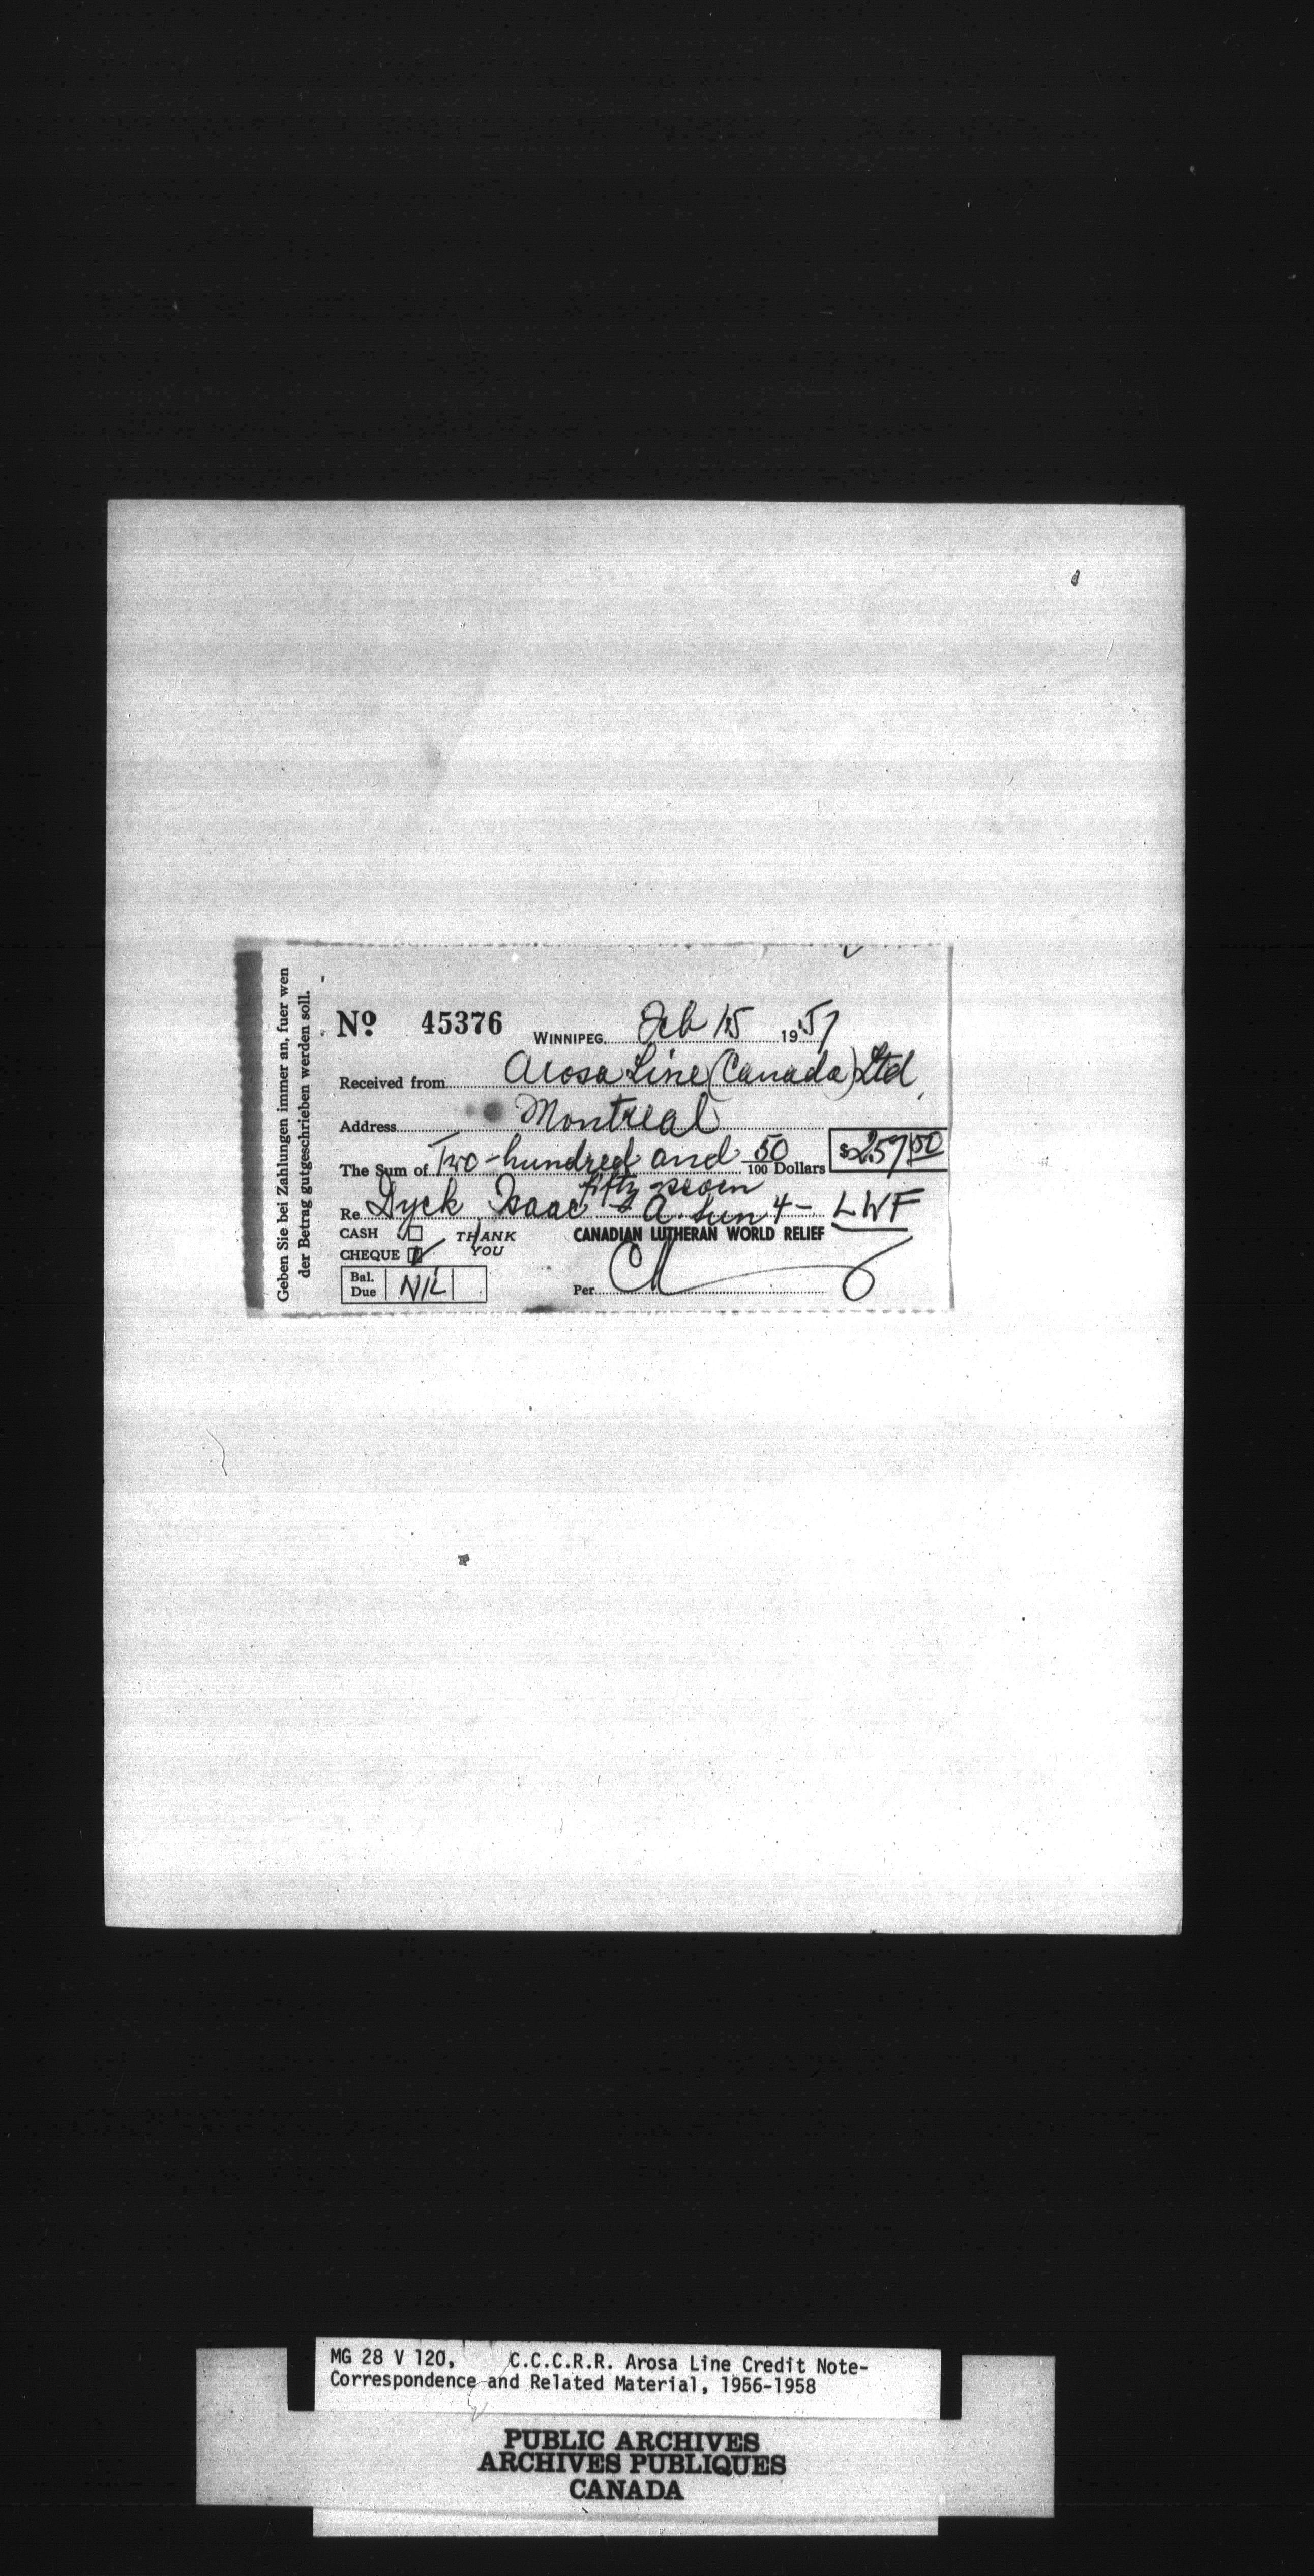 Geben Sie bei Zahlungen immer an, fuer wen
der Betrag gutgeschrieben werden soll.
Nº 45376
WINNIPEG, Feb 15 1957
Received from Arosa Line (Canada) Ltd.
Address Montreal
The Sum of Two-hundred and 50/100 Dollars $257 50
fifty-seven
Re Dyck Isaac - A. Sun 4 - LWF
CASH THANK CANADIAN LUTHERAN WORLD RELIEF
CHEQUE YOU
Bal. Due NIL
Per
MG 28 V 120, C.C.C.R.R. Arosa Line Credit Note-
Correspondence and Related Material, 1956-1958
PUBLIC ARCHIVES
ARCHIVES PUBLIQUES
CANADA